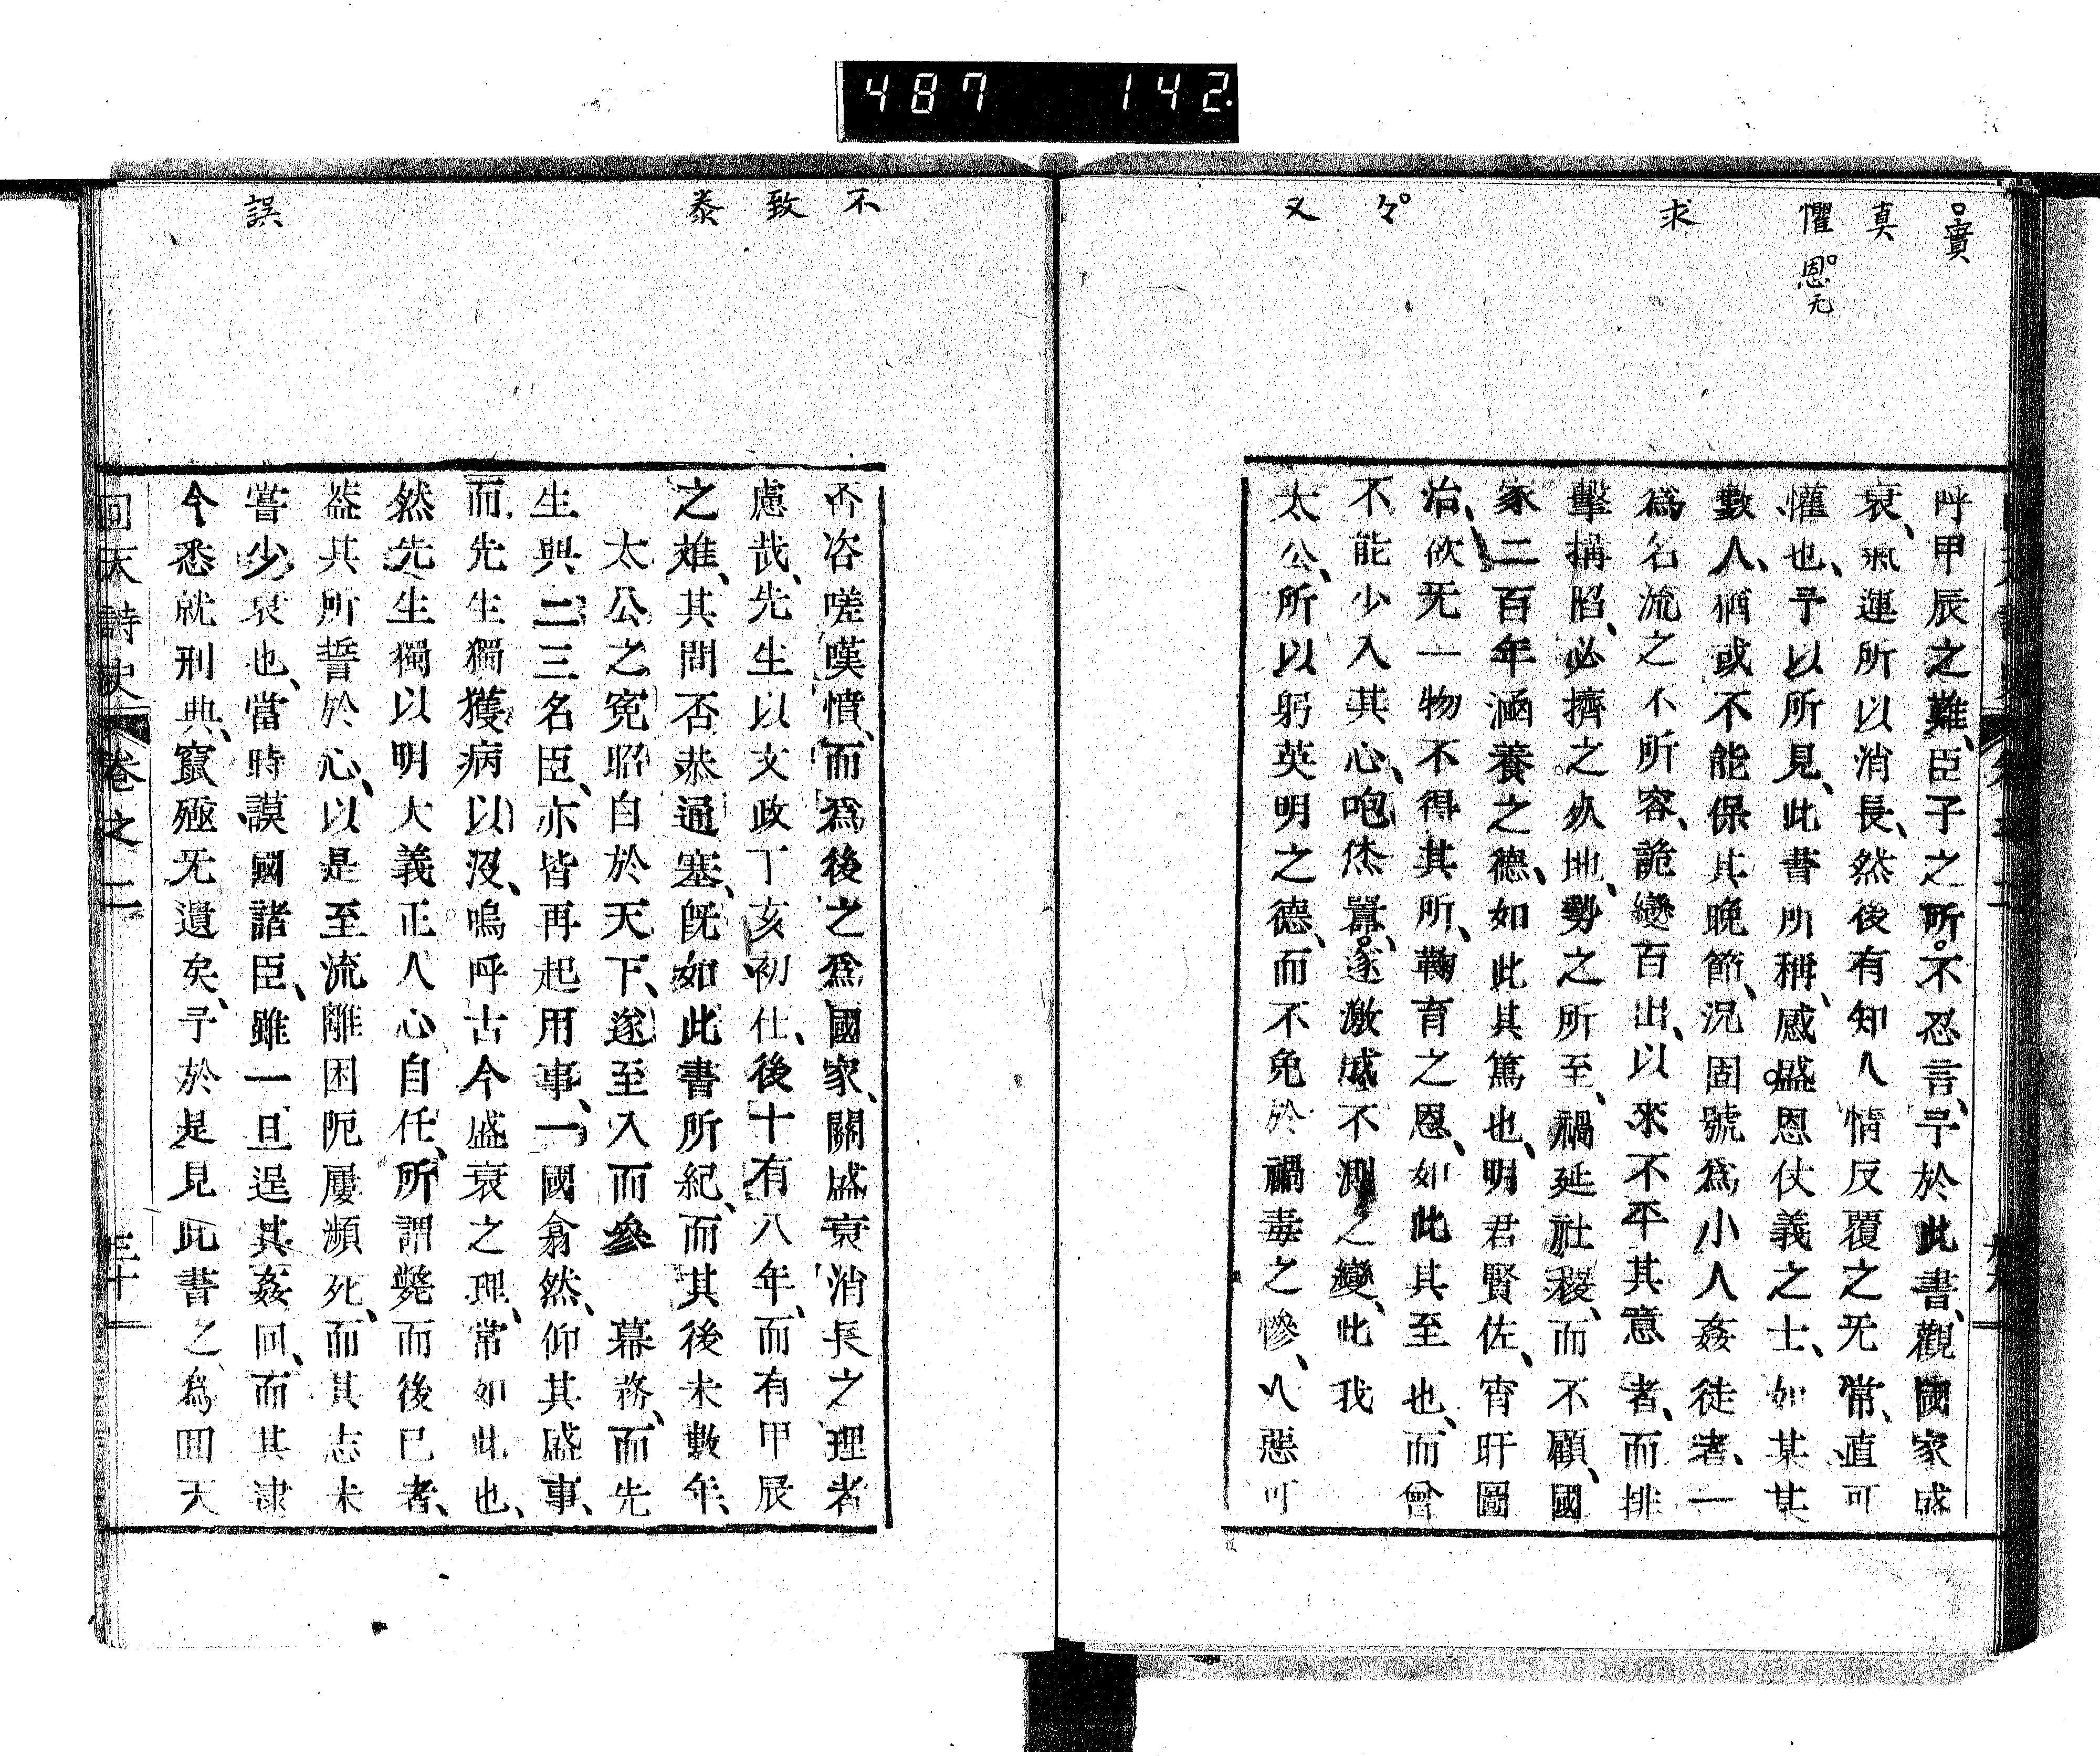 487 142
實
真
懼 恩无
求
々
又
呼甲辰之難、臣子之所不忍言、予於此書、觀國家盛
衰、氣運所以消長、然後有知人情反覆之无常、直可
懽也、予以所見、此書所稱、感盛恩仗義之士、如某某
數人、猶或不能保其晚節、況固號爲小人姦徒者、一
爲名流之不所容、詭變百出、以來不平其意者、而排
擊搆陷、必擠之死地、勢之所至、禍延社稷、而不顧、國
家二百年涵養之德、如此其篤也、明君賢佐、宵旰圖
治、欲无一物不得其所、鞠育之恩、如此其至也、而曾
不能少入其心、咆烋囂、遂激成不測之變、此我
太公、所以躬英明之德、而不免於禍毒之慘、人惡可
不
致
泰
誤
否咨嗟嘆憤、而爲後之爲國家、關盛衰消長之理者
慮哉、先生以文政丁亥初仕、後十有八年、而有甲辰
之難、其間否恭通塞、既如此書所紀、而其後未數年、
太公之冤昭白於天下、遂至入而參 幕務、而先
生與二三名臣、亦皆再起用事、一國翕然、仰其盛事、
而先生獨獲病以沒、嗚呼古今盛衰之理、常如此也、
然先生獨以明大義正人心自任、所謂斃而後已者、
蓋其所誓於心、以是至流離困阨屢瀕死、而其志未
嘗少衰也、當時謨國諸臣、雖一旦逞其姦回、而其隷
今悉就刑典、竄殛无遺矣、予於是見此書之爲回天
回天詩史 卷之二 三十